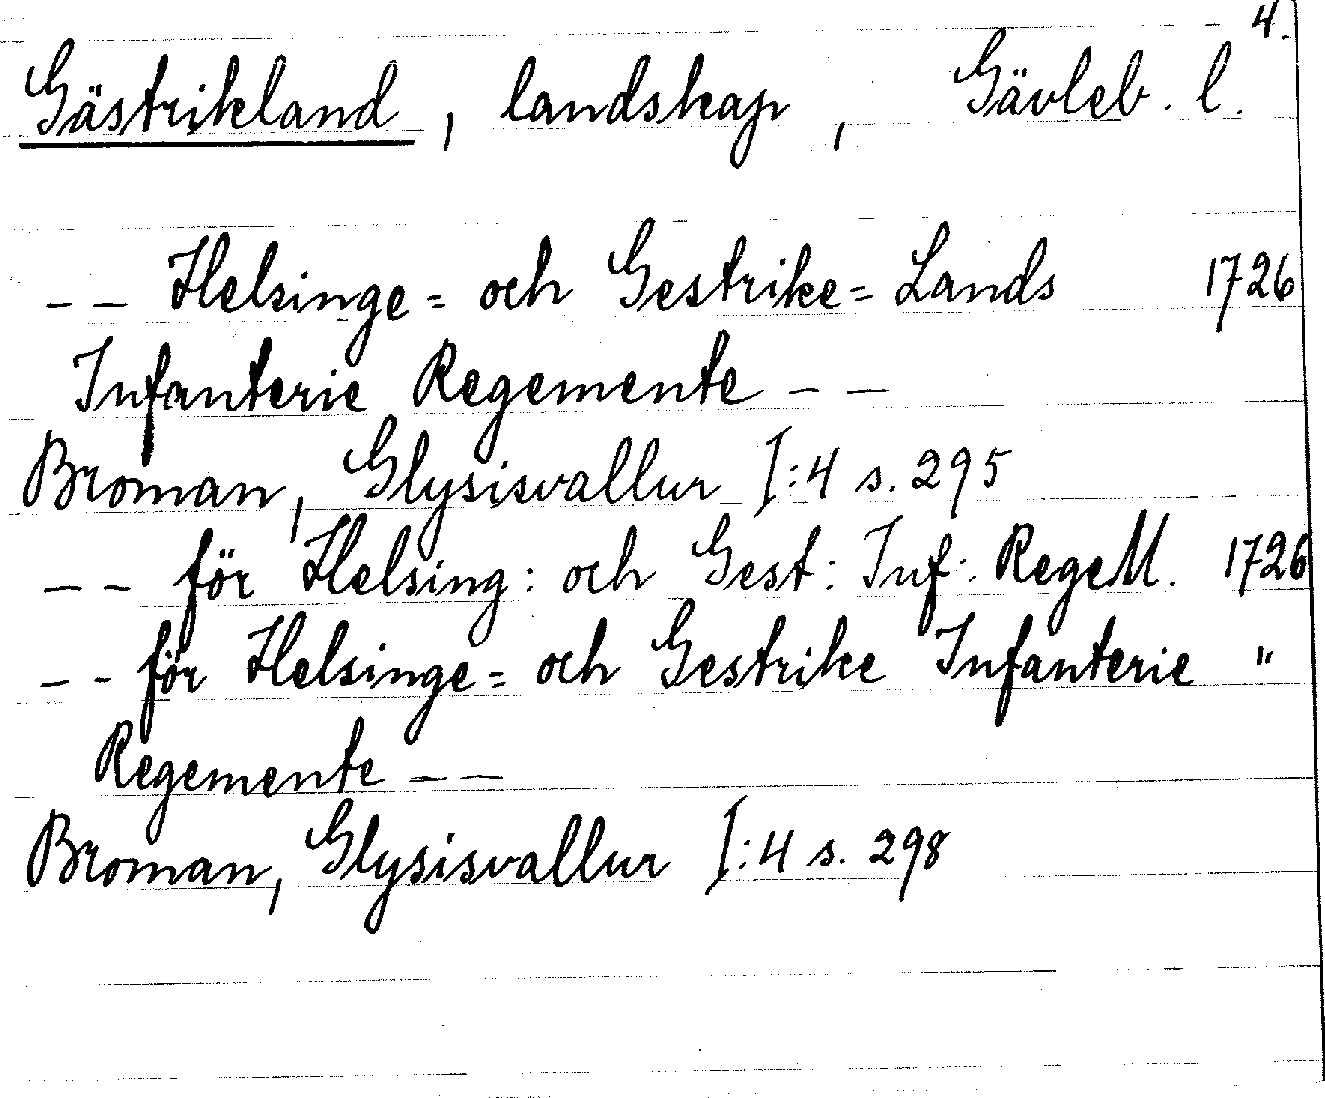 4.
Gästrikland, landskap, Gävleb. l.
-- Helsinge= och Gestrike= Lands 1726
Infanterie Regemente --
Broman, Glysisvallur I:4 s. 295
-- för Helsing: och Gest: Inf: RegeM. 1726
-- för Helsinge= och Gestrike Infanterie "
Regemente --
Broman, Glysisvallur I:4 s. 298